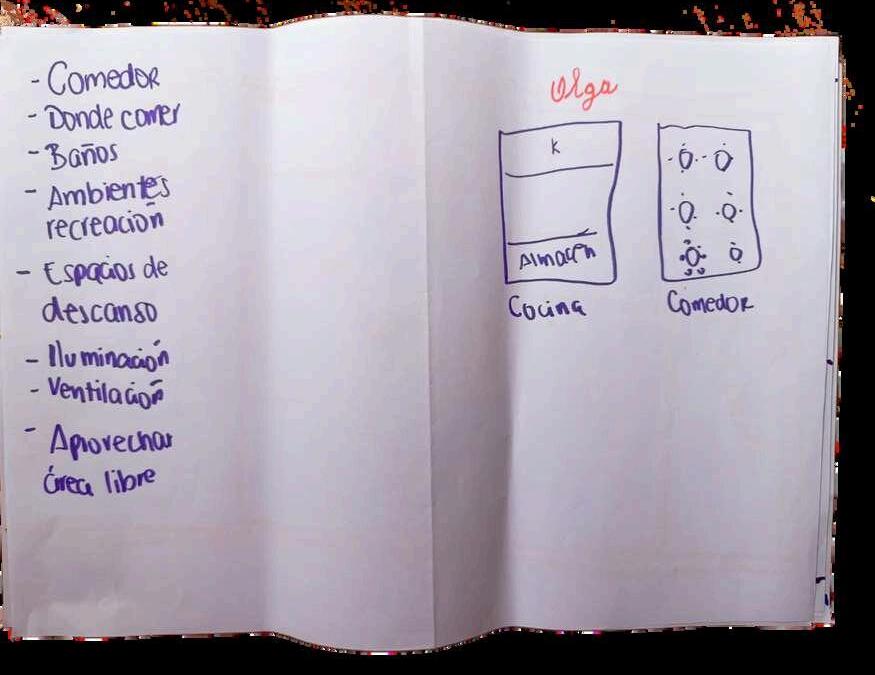 - Comedor
- Donde comer
- Baños
- Ambientes
recreación
- Espacios de
descanso
- Iluminación
- Ventilación
- Aprovechar
área libre
Olga
K
Almacén
Cocina
Comedor